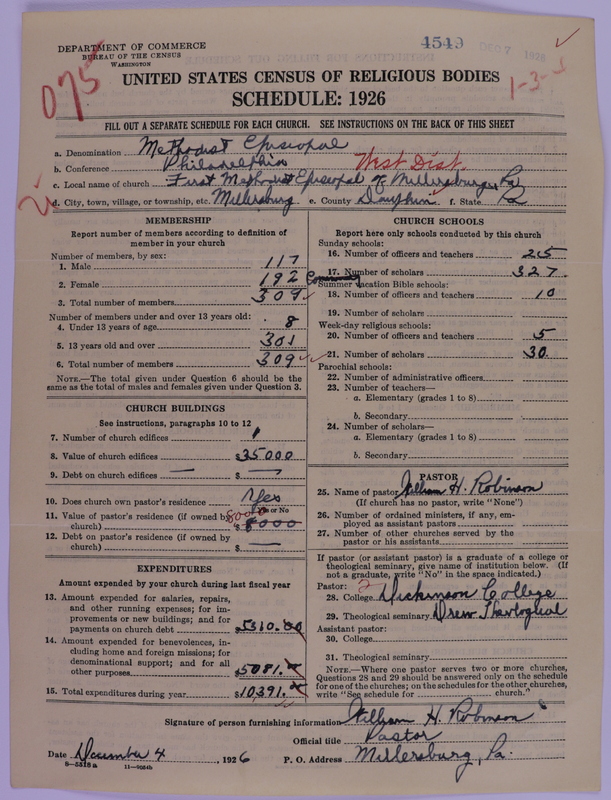 DEPARTMENT OF COMMERCE
BUREAU OF THE CENSUS
WASHINGTON
4549 DEC 7 1926
075
1-3-
UNITED STATES CENSUS OF RELIGIOUS BODIES
SCHEDULE: 1926
FILL OUT A SEPARATE SCHEDULE FOR EACH CHURCH. SEE INSTRUCTIONS ON THE BACK OF THIS SHEET
a. Denomination Methodist Episcopal
b. Conference Philadelphia West Dist.
c. Local name of church First Methodist Episcopal of Millersburg, Pa
d. City, town, village, or township, etc. Millersburg e. County Dauphin f. State Pa
MEMBERSHIP
Report number of members according to definition of member in your church
Number of members, by sex:
1. Male 117
2. Female 192
3. Total number of members 309
Number of members under and over 13 years old:
4. Under 13 years of age 8
5. 13 years old and over 301
6. Total number of members 309
NOTE.—The total given under Question 6 should be the same as the total of males and females given under Question 3.
CHURCH BUILDINGS
See instructions, paragraphs 10 to 12
7. Number of church edifices 1
8. Value of church edifices $35000
9. Debt on church edifices — $ —
10. Does church own pastor's residence Yes
Yes or No
11. Value of pastor's residence (if owned by church) 8000 $ 8000
12. Debt on pastor's residence (if owned by church) — $ —
EXPENDITURES
Amount expended by your church during last fiscal year
13. Amount expended for salaries, repairs, and other running expenses; for improvements or new buildings; and for payments on church debt $5310.00
14. Amount expended for benevolences, including home and foreign missions; for denominational support; and for all other purposes $5081.
15. Total expenditures during year $10391.
CHURCH SCHOOLS
Report here only schools conducted by this church
Sunday schools:
16. Number of officers and teachers 25
17. Number of scholars 327
Community
Summer vacation Bible schools:
18. Number of officers and teachers 10
19. Number of scholars
Week-day religious schools:
20. Number of officers and teachers 5
21. Number of scholars 30.
Parochial schools:
22. Number of administrative officers
23. Number of teachers—
a. Elementary (grades 1 to 8)
b. Secondary
24. Number of scholars—
a. Elementary (grades 1 to 8)
b. Secondary
PASTOR
25. Name of pastor William H. Robinson
(If church has no pastor, write "None")
26. Number of ordained ministers, if any, employed as assistant pastors
27. Number of other churches served by the pastor or his assistants
If pastor (or assistant pastor) is a graduate of a college or theological seminary, give name of institution below. (If not a graduate, write "No" in the space indicated.)
Pastor: 2
28. College Dickinson College
29. Theological seminary Drew Theological
Assistant pastor:
30. College
31. Theological seminary
NOTE.—Where one pastor serves two or more churches, Questions 28 and 29 should be answered only on the schedule for one of the churches; on the schedules for the other churches, write "See schedule for church."
Signature of person furnishing information William H. Robinson
Official title Pastor
Date December 4, 1926 P. O. Address Millersburg, Pa.
8—5515 a 11—9024b